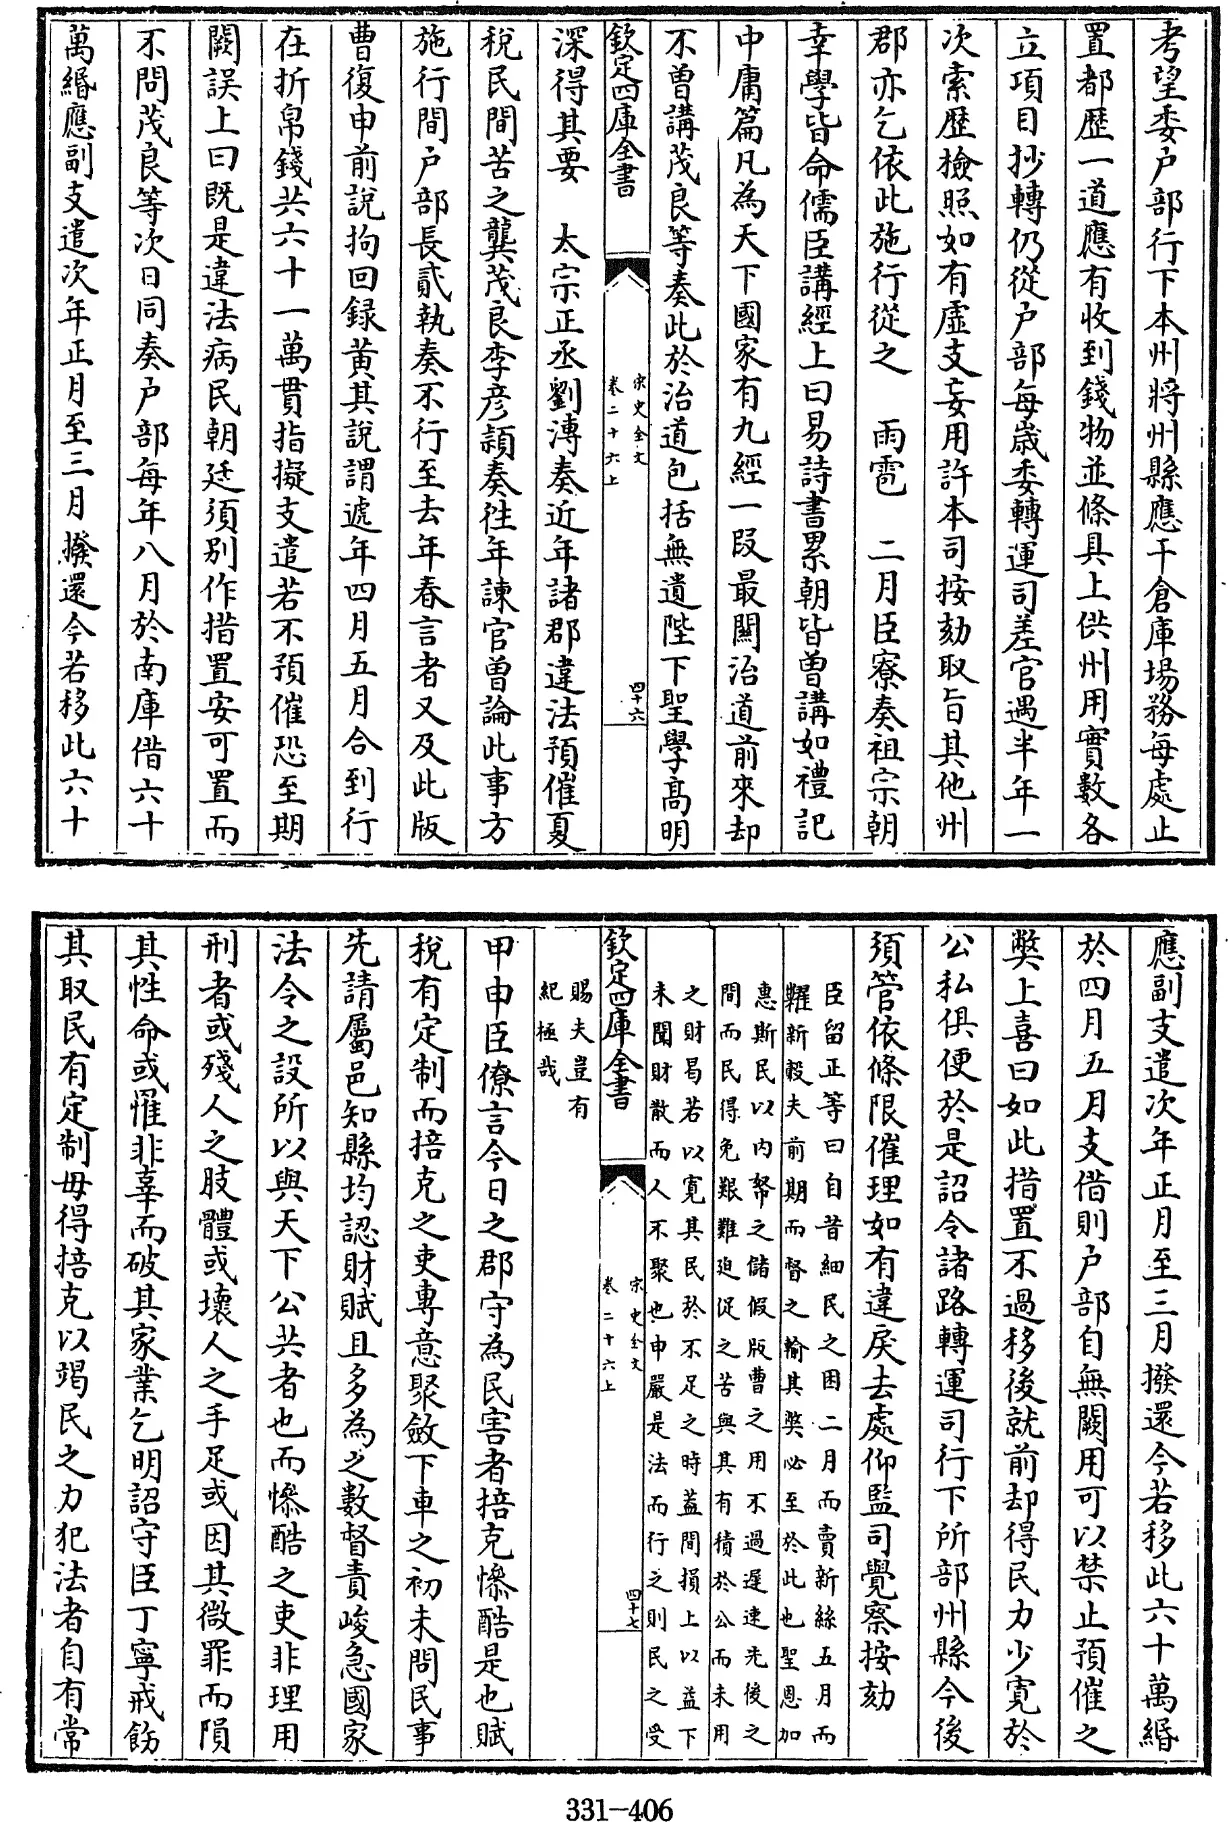 考望委户部行下本州將州縣應干倉庫場務每處止
置都歷一道應有收到錢物並條具上供州用實數各
立項目抄轉仍從户部每歲委轉運司差官遇半年一
次索歷檢照如有虛支妄用許本司按劾取旨其他州
郡亦乞依此施行從之　雨雹　二月臣寮奏祖宗朝
幸學皆命儒臣講經上曰易詩書累朝皆曾講如禮記
中庸篇凡為天下國家有九經一段最關治道前來却
不曾講茂良等奏此於治道包括無遺陛下聖學髙明
欽定四庫全書
宋史全文
卷二十六上
四十六
深得其要　太宗正丞劉溥奏近年諸郡違法預催夏
稅民間苦之龔茂良李彦穎奏往年諫官曾論此事方
施行間户部長貳執奏不行至去年春言者又及此版
曹復申前說拘回録黄其說謂遞年四月五月合到行
在折帛錢共六十一萬貫指擬支遣若不預催恐至期
闕誤上曰既是違法病民朝廷須别作措置安可置而
不問茂良等次日同奏户部每年八月於南庫借六十
萬緡應副支遣次年正月至三月撥還今若移此六十
應副支遣次年正月至三月撥還今若移此六十萬緡
於四月五月支借則户部自無闕用可以禁止預催之
獘上喜曰如此措置不過移後就前却得民力少寛於
公私俱便於是詔令諸路轉運司行下所部州縣今後
須管依條限催理如有違戾去處仰監司覺察按劾
臣留正等曰自昔細民之困二月而賣新絲五月而
糶新穀夫前期而督之輸其獘必至於此也聖恩加
惠斯民以内帑之儲假版曹之用不過遲速先後之
間而民得免艱難迫促之苦與其有積於公而未用
之財曷若以寛其民於不足之時蓋間損上以益下
未聞財散而人不聚也申嚴是法而行之則民之受
賜夫豈有
紀極哉
欽定四庫全書
宋史全文
卷二十六上
四十七
甲申臣僚言今日之郡守為民害者掊克慘酷是也賦
稅有定制而掊克之吏専意聚斂下車之初未問民事
先請屬邑知縣均認財賦且多為之數督責峻急國家
法令之設所以與天下公共者也而慘酷之吏非理用
刑者或殘人之肢體或壞人之手足或因其微罪而隕
其性命或惟非辜而破其家業乞明詔守臣丁寧戒飭
其取民有定制毋得掊克以竭民之力犯法者自有常
331-406